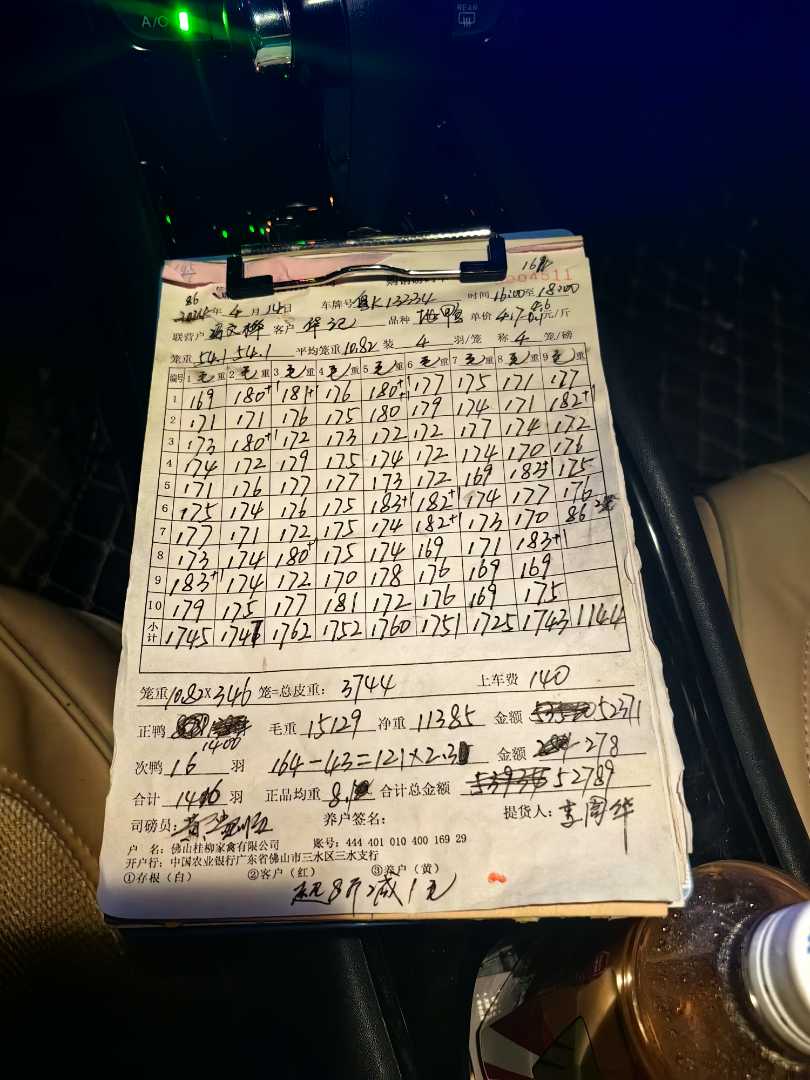 A/C
REAR
004511
车牌号 粤K13334 时间 16:00至18:00
联营户 客户 品种 单价 4.7 元/斤
笼重 54.1 54.1 平均笼重 10.82 装 4 羽/笼 称 4 笼/磅
编号 1 毛重 2 毛重 3 毛重 4 毛重 5 毛重 6 毛重 7 毛重 8 毛重 9 毛重
1 169 180+1 181+1 176 180+1 177 175 171 177
2 171 171 176 175 180+1 179 174 171 182+1
3 173 180+1 172 173 172 172 177 174 172
4 174 172 179 175 174 172 174 170 176
5 171 176 177 177 173 172 169 183+1 175
6 175 174 176 175 183+1 182+1 174 177 176
7 177 171 172 175 174 182+1 173 170 86
8 173 174 180+1 175 174 169 171 183+1
9 183+1 174 172 170 178 176 169 169
10 179 175 177 181 172 176 169 175
小计 1745 1747 1762 1752 1760 1751 1725 1743 1144
笼重 10.82×346 笼=总皮重: 3744 上车费 140
正鸭 1400 毛重 15129 净重 11385 金额 52371
次鸭 16 羽 164-43=121×2.3 金额 278
合计 1416 羽 正品均重 8.1 合计总金额 52789
司磅员: 养户签名: 提货人: 李周华
户 名: 佛山桂柳家禽有限公司 账号: 444 401 010 400 169 29
开户行: 中国农业银行广东省佛山市三水区三水支行
①存根(白) ②客户(红) ③养户(黄)
超8斤减1元